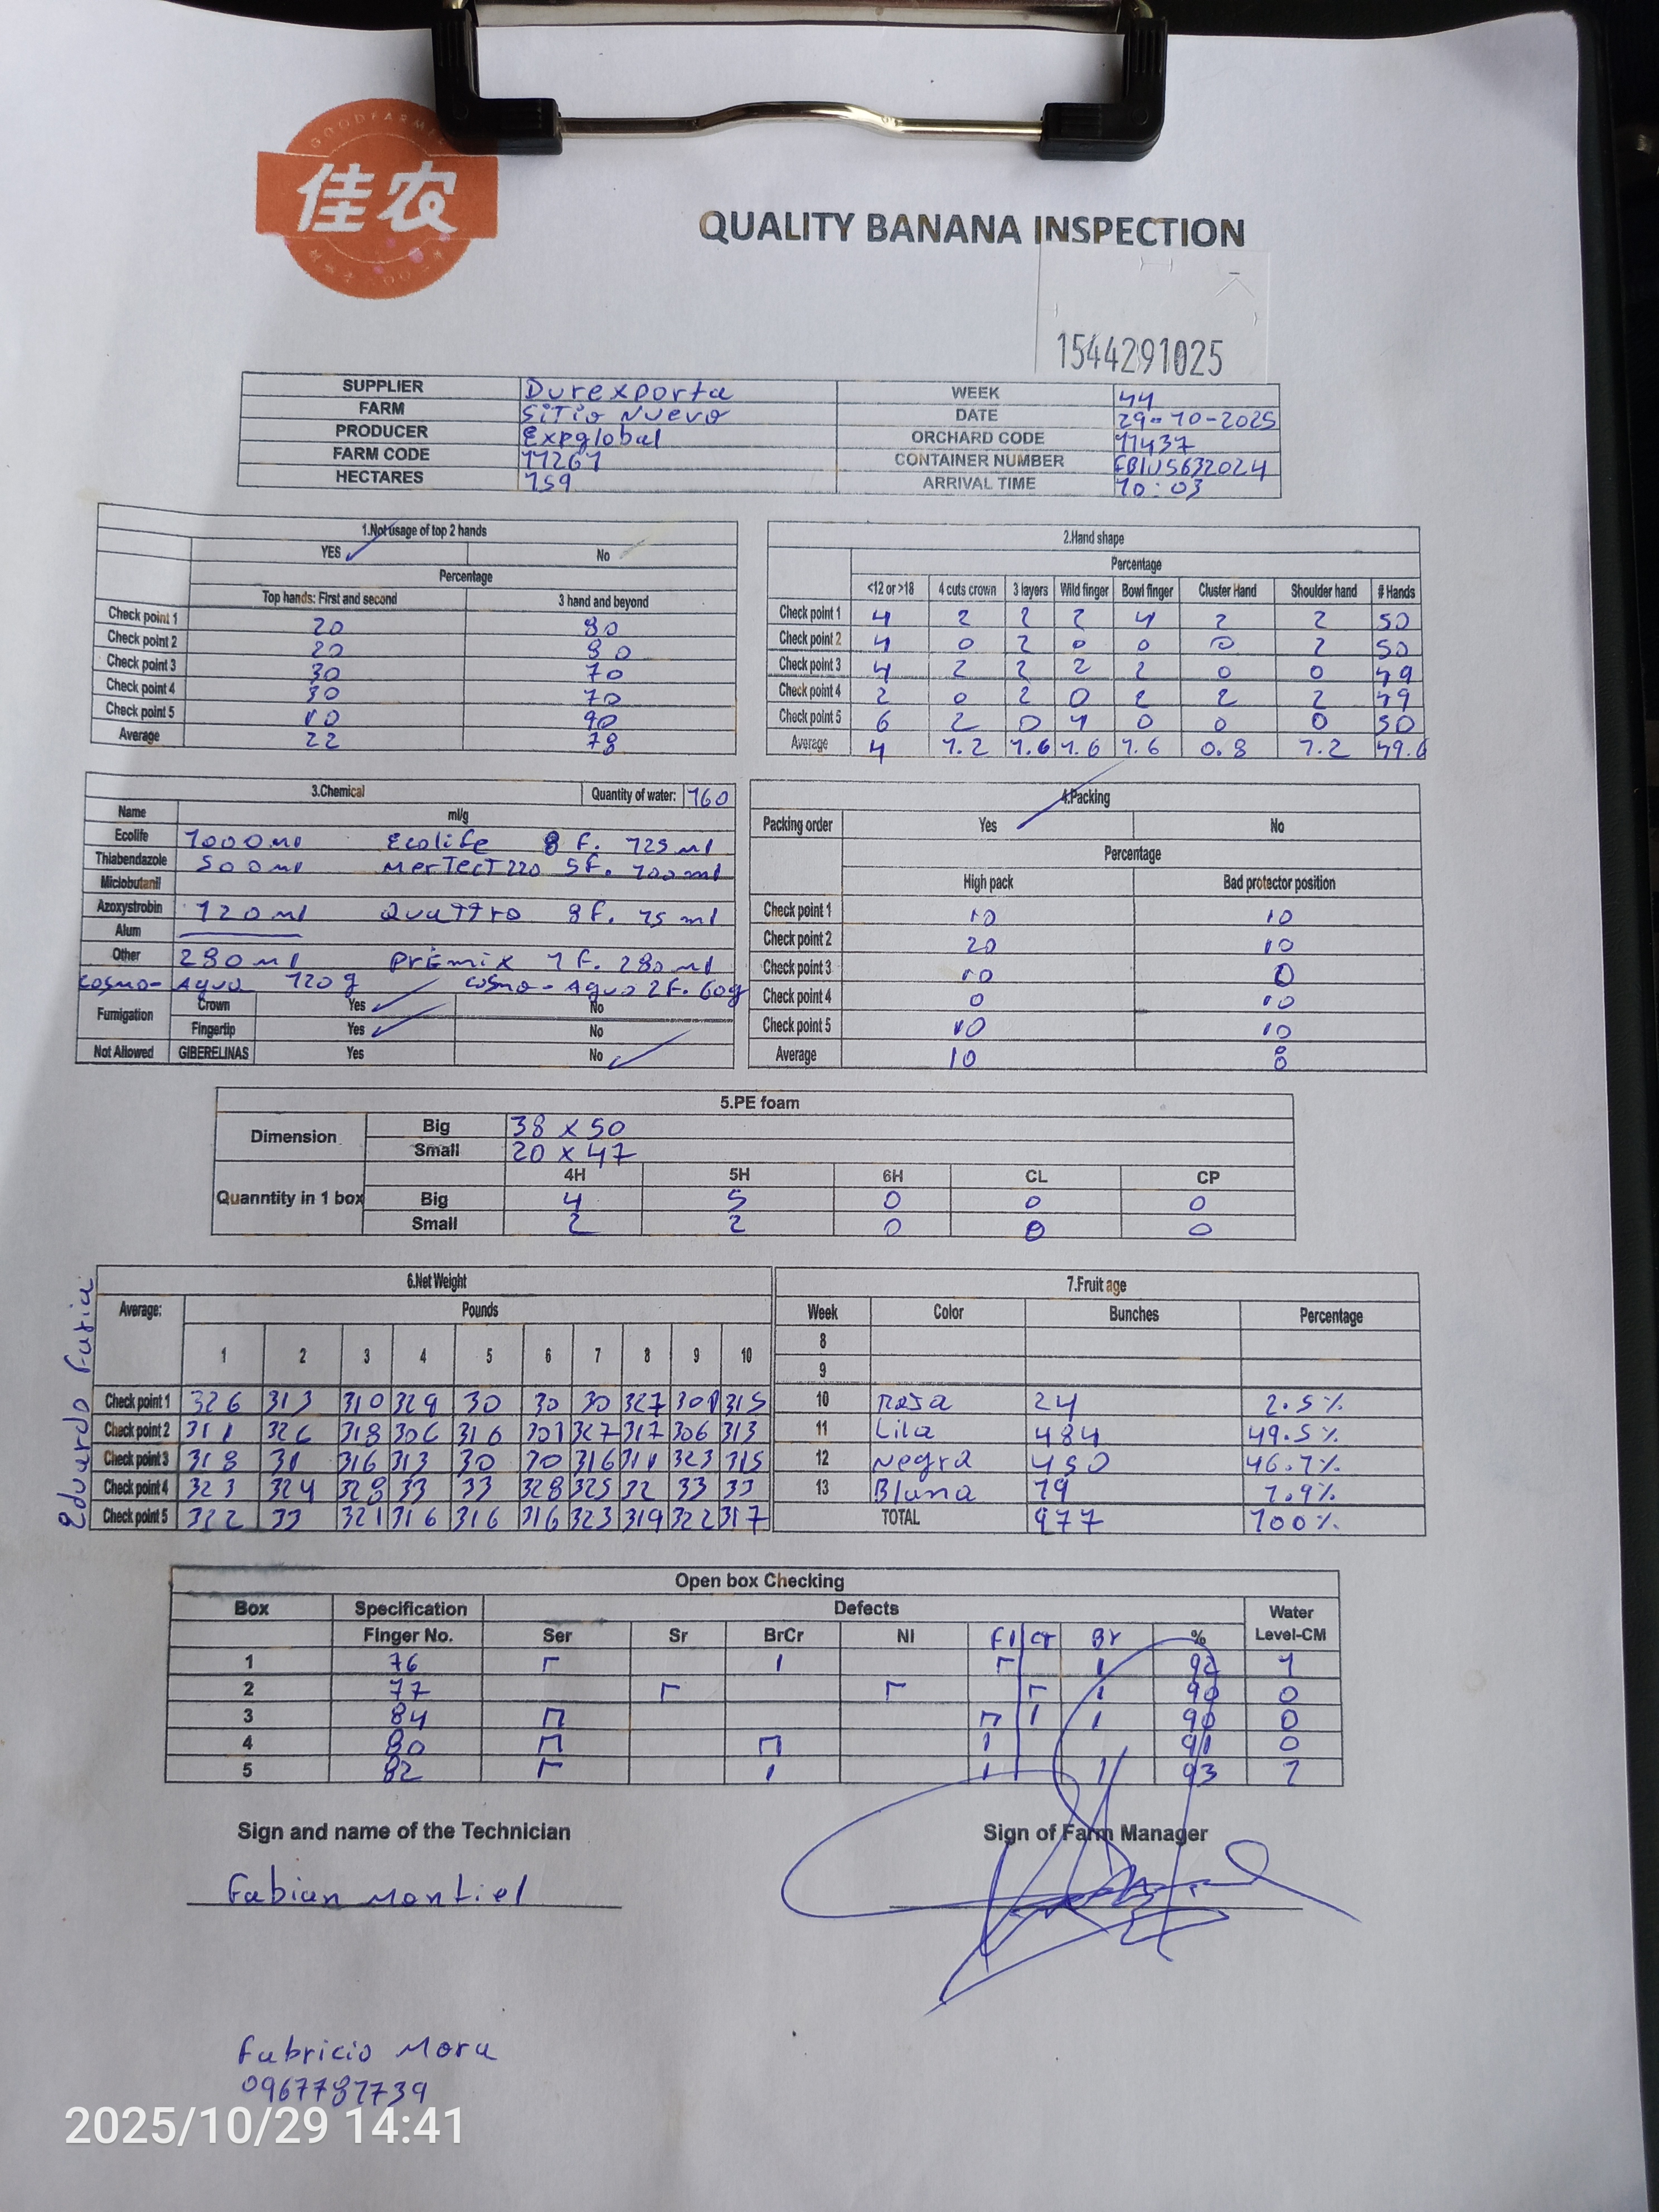 GOODFARMER
佳农
QUALITY BANANA INSPECTION
1544291025
SUPPLIER Durexporta WEEK 44
FARM Sitio Nuevo DATE 29-10-2025
PRODUCER Expglobal ORCHARD CODE 11437
FARM CODE 11261 CONTAINER NUMBER
HECTARES 159 ARRIVAL TIME 10:03
1.Not usage of top 2 hands
YES ✓ No
Percentage
Top hands: First and second 3 hand and beyond
Check point 1 20 80
Check point 2 20 80
Check point 3 30 70
Check point 4 30 70
Check point 5 10 90
Average 22 78
2.Hand shape
Percentage
<12 or >18 4 cuts crown 3 layers Wild finger Bowl finger Cluster Hand Shoulder hand # Hands
Check point 1 4 2 2 2 4 2 2 50
Check point 2 4 0 2 0 0 0 2 50
Check point 3 4 2 2 2 2 0 0 49
Check point 4 2 0 2 0 2 2 2 49
Check point 5 6 2 0 4 0 0 0 50
Average 4 1.2 1.6 1.6 1.6 0.8 1.2 49.6
3.Chemical Quantity of water: 160
Name ml/g
Ecolife 1000 ml Ecolife 8 f. 125 ml
Thiabendazole 500 ml Mertect 220 5f. 100 ml
Miclobutanil
Azoxystrobin 120 ml Quattro 8 f. 15 ml
Alum
Other 280 ml Premix 1 f. 280 ml
Cosmo-Agua 120 g Cosmo-Agua 2f. 60g
Fumigation Crown Yes ✓ No
Fingertip Yes ✓ No
Not Allowed GIBERELINAS Yes No ✓
4.Packing
Packing order Yes ✓ No
Percentage
High pack Bad protector position
Check point 1 10 10
Check point 2 20 10
Check point 3 10 0
Check point 4 0 10
Check point 5 10 10
Average 10 8
5.PE foam
Dimension Big 38 x 50
Small 20 x 47
4H 5H 6H CL CP
Quanntity in 1 box Big 4 5 0 0 0
Small 2 2 0 0 0
Eduardo
6.Net Weight
Average: Pounds
1 2 3 4 5 6 7 8 9 10
Check point 1 326 313 310 329 30 30 30 327 301 315
Check point 2 311 326 318 306 316 301 327 317 306 313
Check point 3 318 31 316 313 30 30 316 311 323 315
Check point 4 323 324 328 33 33 328 325 32 33 33
Check point 5 322 33 321 316 316 316 323 319 322 317
7.Fruit age
Week Color Bunches Percentage
8
9
10 Rosa 24 2.5%
11 Lila 484 49.5%
12 Negra 450 46.1%
13 19 1.9%
TOTAL 977 100%
Open box Checking
Box Specification Defects Water
Finger No. Ser Sr BrCr NI FI Cr Br % Level-CM
1 76 92 1
2 77 90 0
3 84 90 0
4 80 91 0
5 82 93 1
Sign and name of the Technician Sign of Farm Manager
Fabian Montiel
Fabricio Mora
0967787739
2025/10/29 14:41